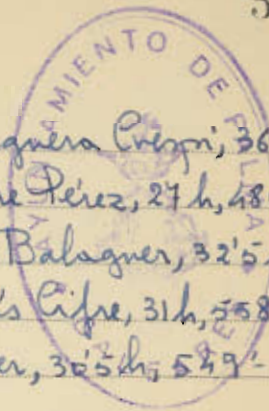 AYUNTAMIENTO DE
guera Crespí, 36
re Pérez, 27 h, 48
Balaguer, 32'5
s Cifre, 31 h, 558
er, 30'5 h, 549'-